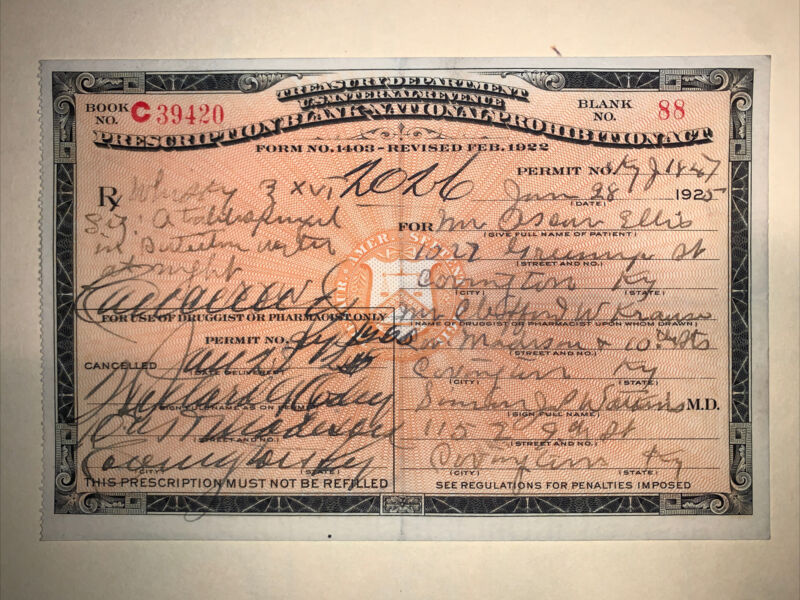 TREASURY DEPARTMENT
U.S. INTERNAL REVENUE
BOOK NO. C39420
BLANK NO. 88
PRESCRIPTION BLANK-NATIONAL PROHIBITION ACT
FORM NO. 1403 - REVISED FEB. 1922
PERMIT NO. Ky J 1447
Rx
2026
Jan 28 1925
(DATE)
Sig: A tablespoonful
in water
at night
FOR Mr Oscar Ellis
(GIVE FULL NAME OF PATIENT)
Greenup St
(STREET AND NO.)
Covington Ky
(CITY) (STATE)
FOR USE OF DRUGGIST OR PHARMACIST ONLY
Mr Clifford W Krause
(NAME OF DRUGGIST OR PHARMACIST UPON WHOM DRAWN)
PERMIT NO.
Madison & 10th Sts
(STREET AND NO.)
CANCELLED Jan
DATE DELIVERED
Covington Ky
(CITY) (STATE)
(SIGN FULL NAME AS ON PERMIT)
M.D.
(SIGN FULL NAME)
Madison
(STREET AND NO.)
St
(STREET AND NO.)
Covington Ky
(CITY) (STATE)
Covington Ky
(CITY) (STATE)
THIS PRESCRIPTION MUST NOT BE REFILLED
SEE REGULATIONS FOR PENALTIES IMPOSED